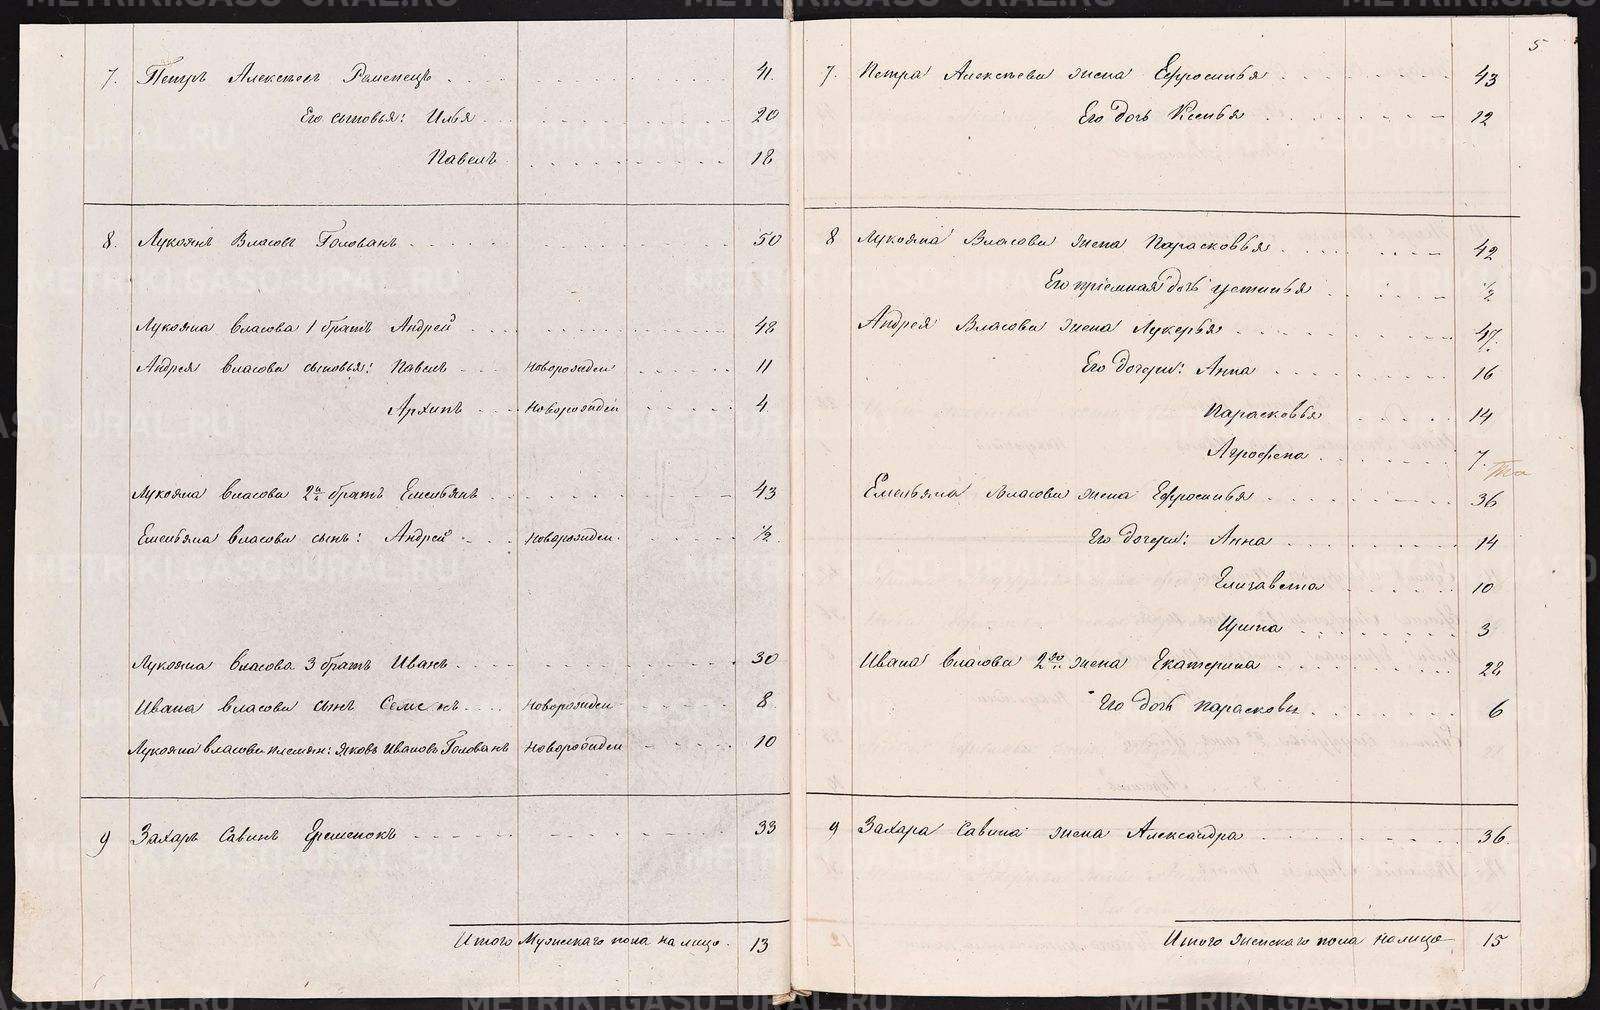 7. Петръ Алексѣевъ Роменецъ 41.
Его сыновья: Илья 20
Павелъ 18
8. Лукоянъ Власовъ Голованъ 50
Лукояна Власова 1 братъ Андрей 48
Андрея Власова сыновья: Павелъ новорожден 11
Архипъ новорожден 4
Лукояна Власова 2й братъ Емельянъ 43
Емельяна Власова сынъ: Андрей новорожден. ½
Лукояна Власова 3 братъ Иванъ 30
Ивана Власова сынъ Семенъ новорожден 8
Лукояна Власова племян: Яковъ Ивановъ Голованъ новорожден 10
9 Захаръ Савинъ Еременокъ 33
Итого Мужескаго пола на лицо. 13
5
7. Петра Алексѣева жена Ефросинья 43
Его дочь Ксенья 12
8 Лукояна Власова жена Парасковья 42
Его пріемная дочь Устинья ½
Андрея Власова жена Лукерья 47.
Его дочери: Анна 16
Парасковья 14
Агрофена 7.
Емельяна Власова жена Ефросинья 36
Его дочери: Анна 14
Елизавета 10
Ирина 3
Ивана Власова 2я жена Екатерина 28
Его дочь Парасковья 6
9 Захара Савина жена Александра 36.
Итого женскаго пола налицо 15
METRIKI.GASO-URAL.RU